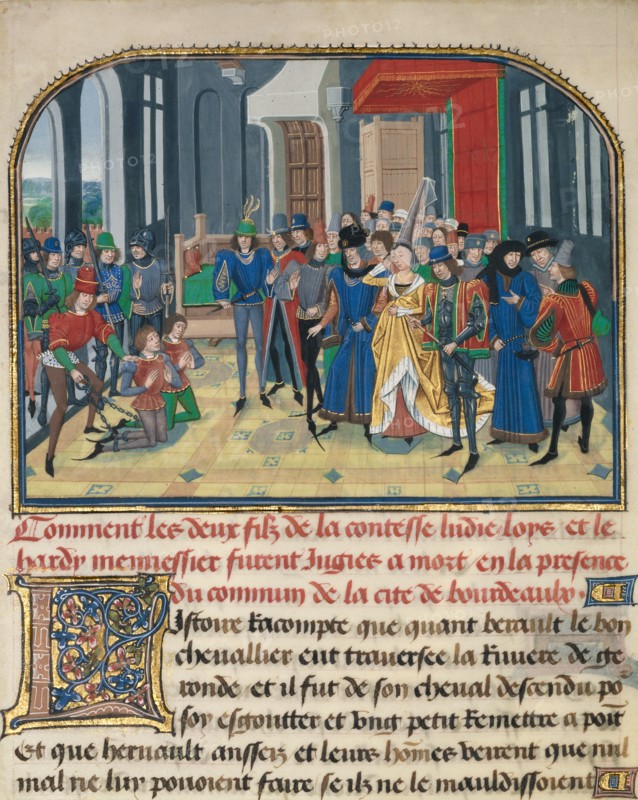 Comment les deux filz de la contesse ludie loys et le
hardy mennessier furent Jugies a mort en la presence
du commun de la cite de bourdeaulx.
Listoire Racompte que quant berault le bon
chevallier eut traversee la Riviere de ge
ronde et il fut de son cheval descendu po
soy esgoutter et ung petit Remettre a point
Et que hernault ansseiz et leurs hommes veirent que nul
mal ne luy povoient faire se ilz ne le mauldissoient
PHOTO12